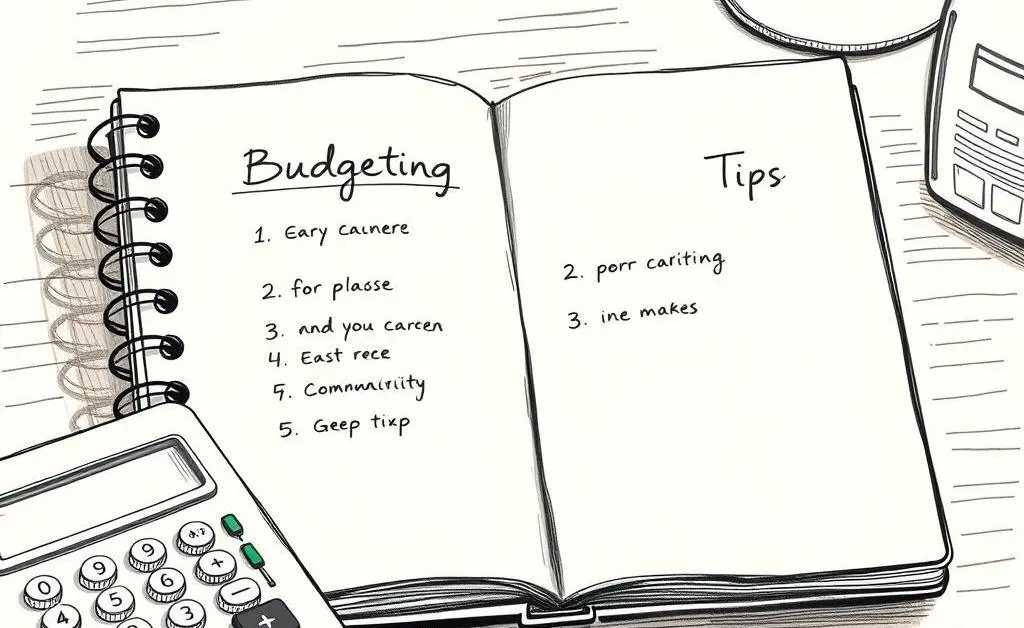 Budgeting
1. Eary caunere
2. for plasse
3. and you carcen
4. East rece
5. Communirity
5. Geep tixp
Tips
2. porr cariting
3. ine makes
0 9 9
4 5 6 +
3 −
+